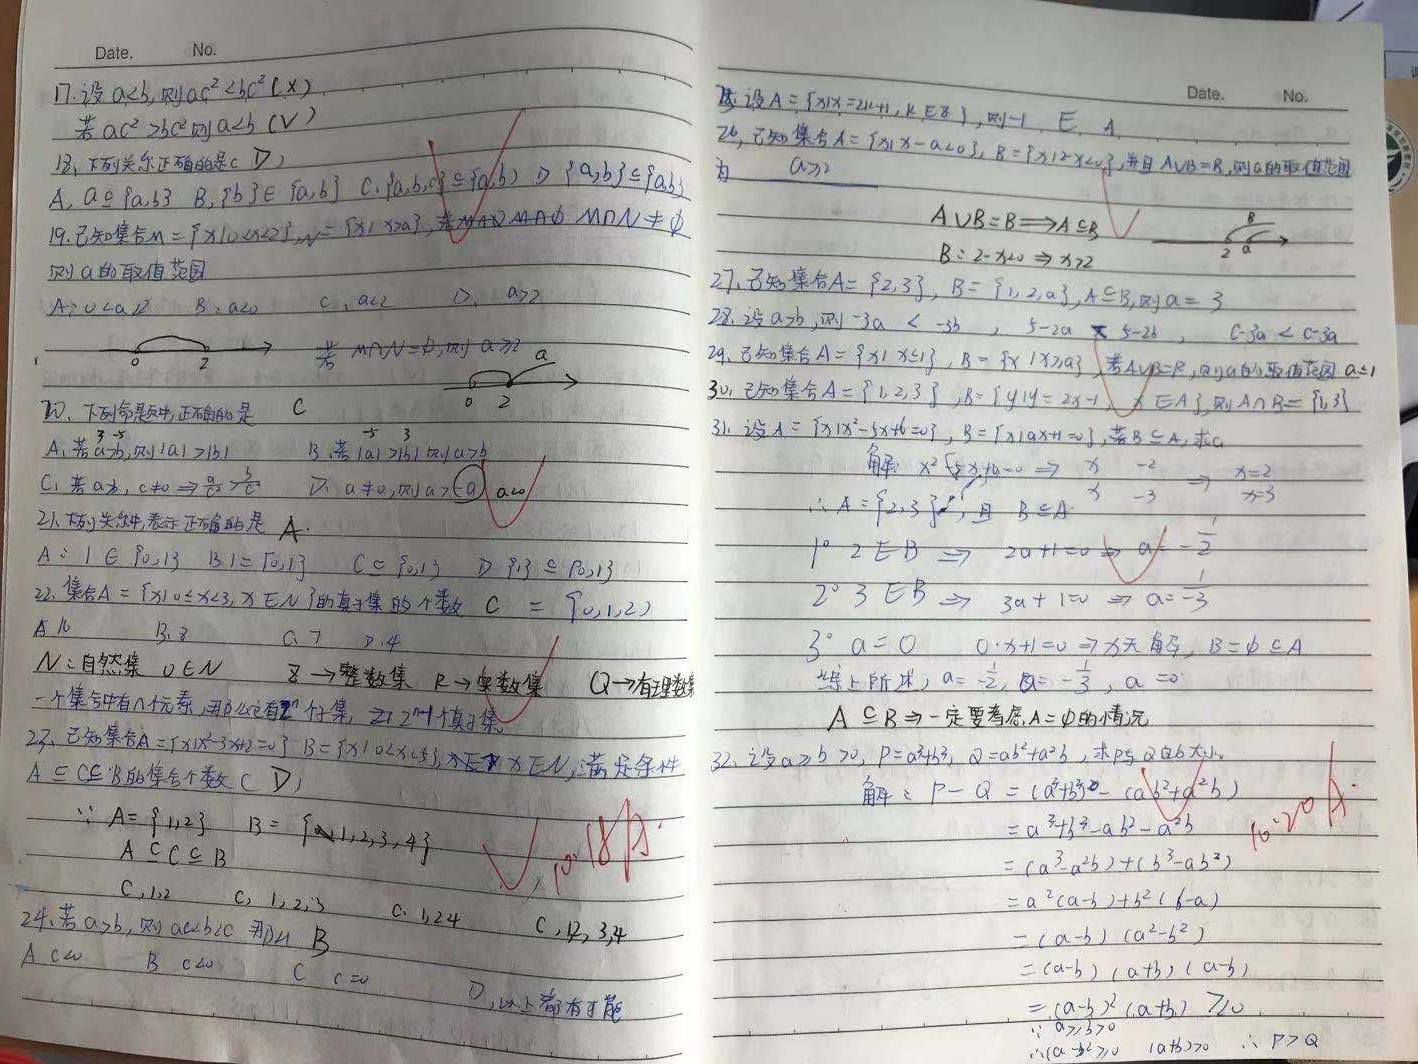 Date. No.
17.设a<b,则ac²<bc²(×)
若ac²>bc²则a<b(√)
18、下列关系正确的是( D )
A. a⊆{a,b} B.{b}∈{a,b} C.{a,b,c}⊆{a,b} D {a,b}⊆{a,b}
19.已知集合M={x|0<x<2},N={x|x>a},若 M∩N≠φ
则a的取值范围
B.a<0 C.a<2 D. a>2
0 2 若 M∩N=φ,则 a≥2 a
0 2
20、下列命题中,正确的是 C
3 -5 -5 3
A.若a>b,则|a|>|b| B.若|a|>|b|则a>b
D. a≠0,则a>(-a) a<0
21.下列关系中,表示正确的是 A.
A:1∈{0,1}
22.集合A={x|0≤x<3,x∈N}的真子集的个数 C ={0,1,2}
B.8 C.7 D.4
N:自然集 0∈N Z→整数集 R→实数集 Q→有理数集
一个集合中有n个元素,那么它有2ⁿ个子集, 2ⁿ-1个真子集.
23、已知集合A={x|x²-3x+2=0} B={x|0<x<5}, x∈N,满足条件
A⊆C⊆B的集合个数( D )
∵A={1,2} B={1,2,3,4}
A⊆C⊆B
C,1,2 C,1,2,3 C.1,2 4 C,1,2,3,4
10.18
24.若a>b,则ac<bc 那么 B
A c≤0 B c<0 C c=0 D,以上都有可能
Date. No.
25.设A={x|x=2k+1,k∈Z},则-1 ∈ A
26,已知集合A={x|x-a<0},B={x|2-x<0},并且A∪B=B,则a的取值范围
为 a≥2
A∪B=B⟹A⊆B B
B:2-x<0⇒x>2 2 a
27.已知集合A={2,3},B={1,2,a},A⊆B,则a=3
28.设a>b,则-3a<-3b, 5-2a < 5-2b, c-3a<c-3a
29.已知集合A={x|x≤1},B={x|x≥a},若A∪B=R,则a的取值范围 a≤1
30.已知集合A={1,2,3},B={y|y=2x-1,x∈A},则A∩B={1,3}
31.设A={x|x²-5x+6=0},B={x|ax+1=0},若B⊆A,求a
解:x²-5x+6=0⇒ x -2 ⇒ x=2
x -3 x=3
∴A={2,3},且B⊆A
1° 2∈B ⇒ 2a+1=0⇒a=-1/2
2° 3∈B ⇒ 3a+1=0⇒a=-1/3
3° a=0 0·x+1=0⇒x无解, B=φ⊆A
综上所述,a=-1/2, a=-1/3, a=0
A⊆B⇒一定要考虑A=φ的情况
32.设a≥b>0,P=a³+b³,Q=ab²+a²b,求P与Q的大小.
解:P-Q=(a³+b³)-(ab²+a²b)
=a³+b³-ab²-a²b
=(a³-a²b)+(b³-ab²)
=a²(a-b)+b²(b-a)
=(a-b)(a²-b²)
=(a-b)(a+b)(a-b)
=(a-b)²(a+b) ≥0
∵a≥b>0
∴(a-b)²≥0 (a+b)>0 ∴P≥Q
10.20